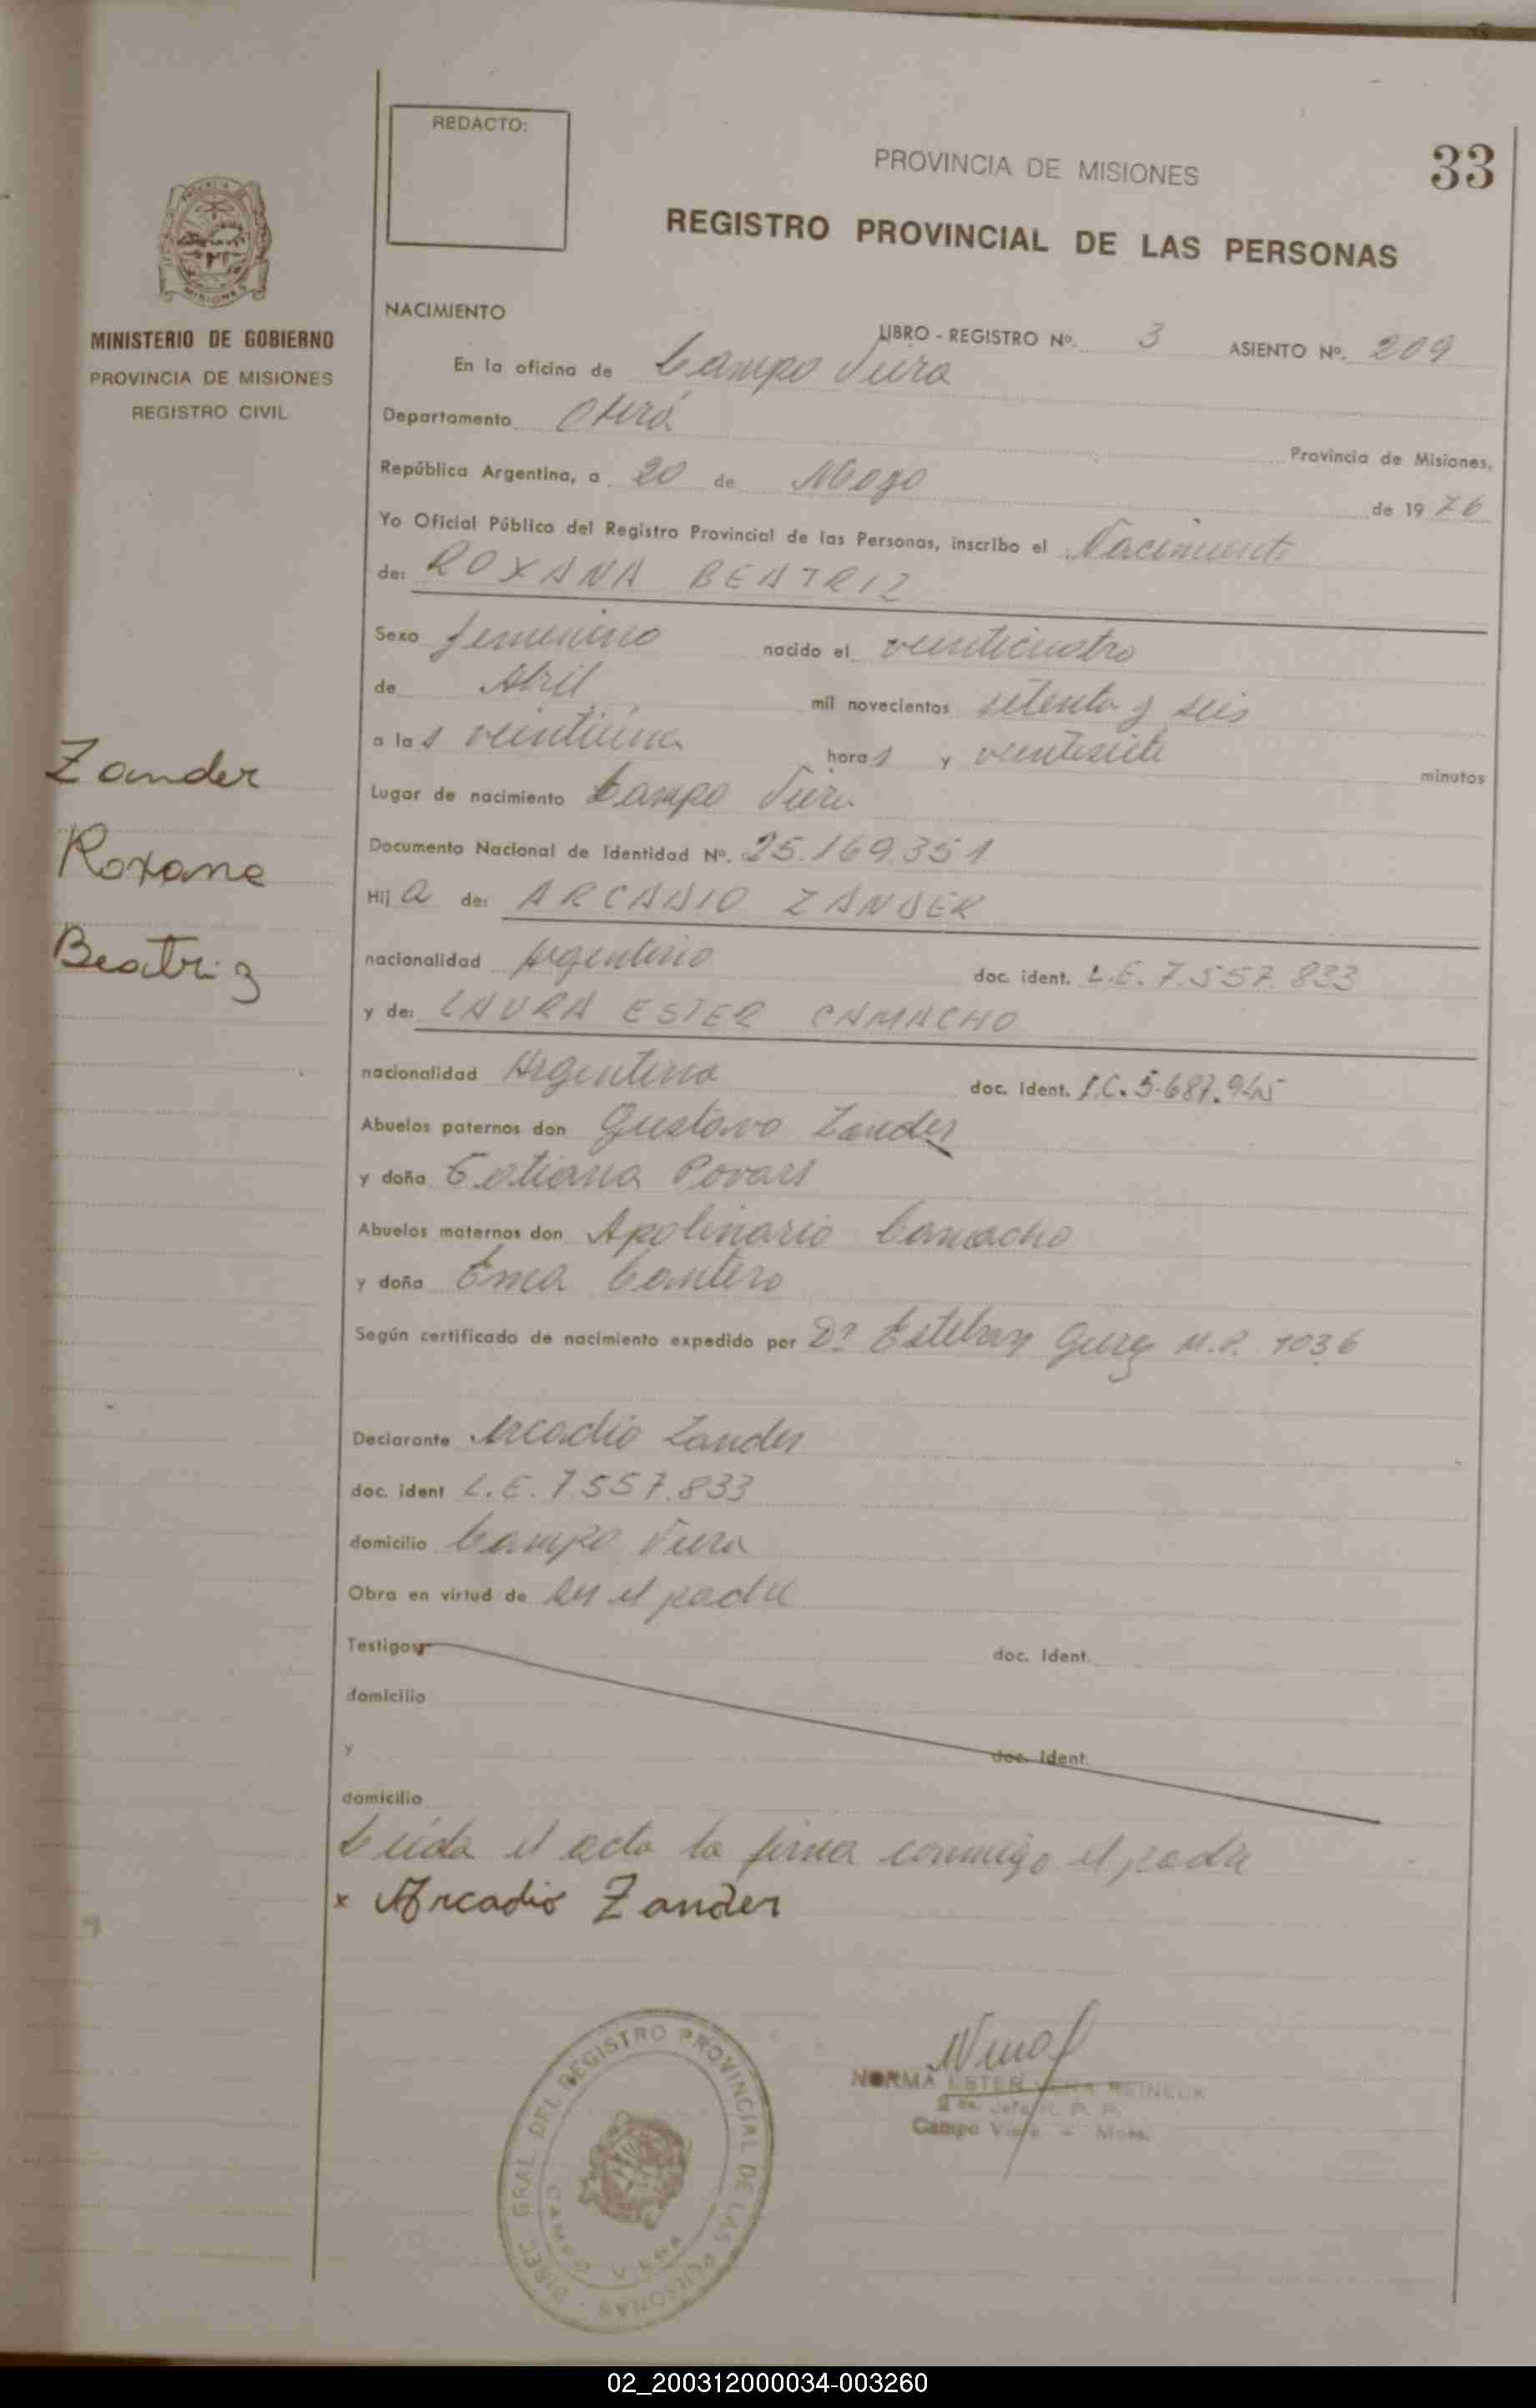 REDACTO:
PROVINCIA DE MISIONES
33
REGISTRO PROVINCIAL DE LAS PERSONAS
MISIONES
MINISTERIO DE GOBIERNO
PROVINCIA DE MISIONES
REGISTRO CIVIL
NACIMIENTO
LIBRO - REGISTRO Nº. 3 ASIENTO Nº. 209
En la oficina de Campo Viera
Departamento Oberá
Provincia de Misiones,
República Argentina, a 20 de Mayo de 1976
Yo Oficial Público del Registro Provincial de las Personas, inscribo el Nacimiento
de: ROXANA BEATRIZ
Sexo femenino nacido el veinticuatro
de Abril mil novecientos setenta y seis
a las veintiuna horas y veintisiete minutos
Lugar de nacimiento Campo Viera
Documento Nacional de Identidad Nº. 25.169.351
Hija de: ARCADIO ZANDER
nacionalidad Argentino doc. ident. L.E. 7.557.833
y de: LAURA ESTER CAMACHO
nacionalidad Argentina doc. ident. L.C. 5.687.945
Abuelos paternos don Gustavo Zander
y doña Tatiana Povars
Abuelos maternos don Apolinario Camacho
y doña Ema Cantero
Según certificado de nacimiento expedido por Dr. Esteban M.P. 1036
Declarante Arcadio Zander
doc. ident L.E. 7.557.833
domicilio Campo Viera
Obra en virtud de ser el padre
Testigos doc. ident.
domicilio
y doc. ident.
domicilio
Leída el acta la firma conmigo el padre
x Arcadio Zander
Zander
Roxana
Beatriz
DIREC. GRAL. DEL REGISTRO PROVINCIAL DE LAS PERSONAS
CAMPO VIERA
NORMA ESTER VERA REINECK
Jefa R. P. P.
Campo Viera - Mnes.
02_200312000034-003260